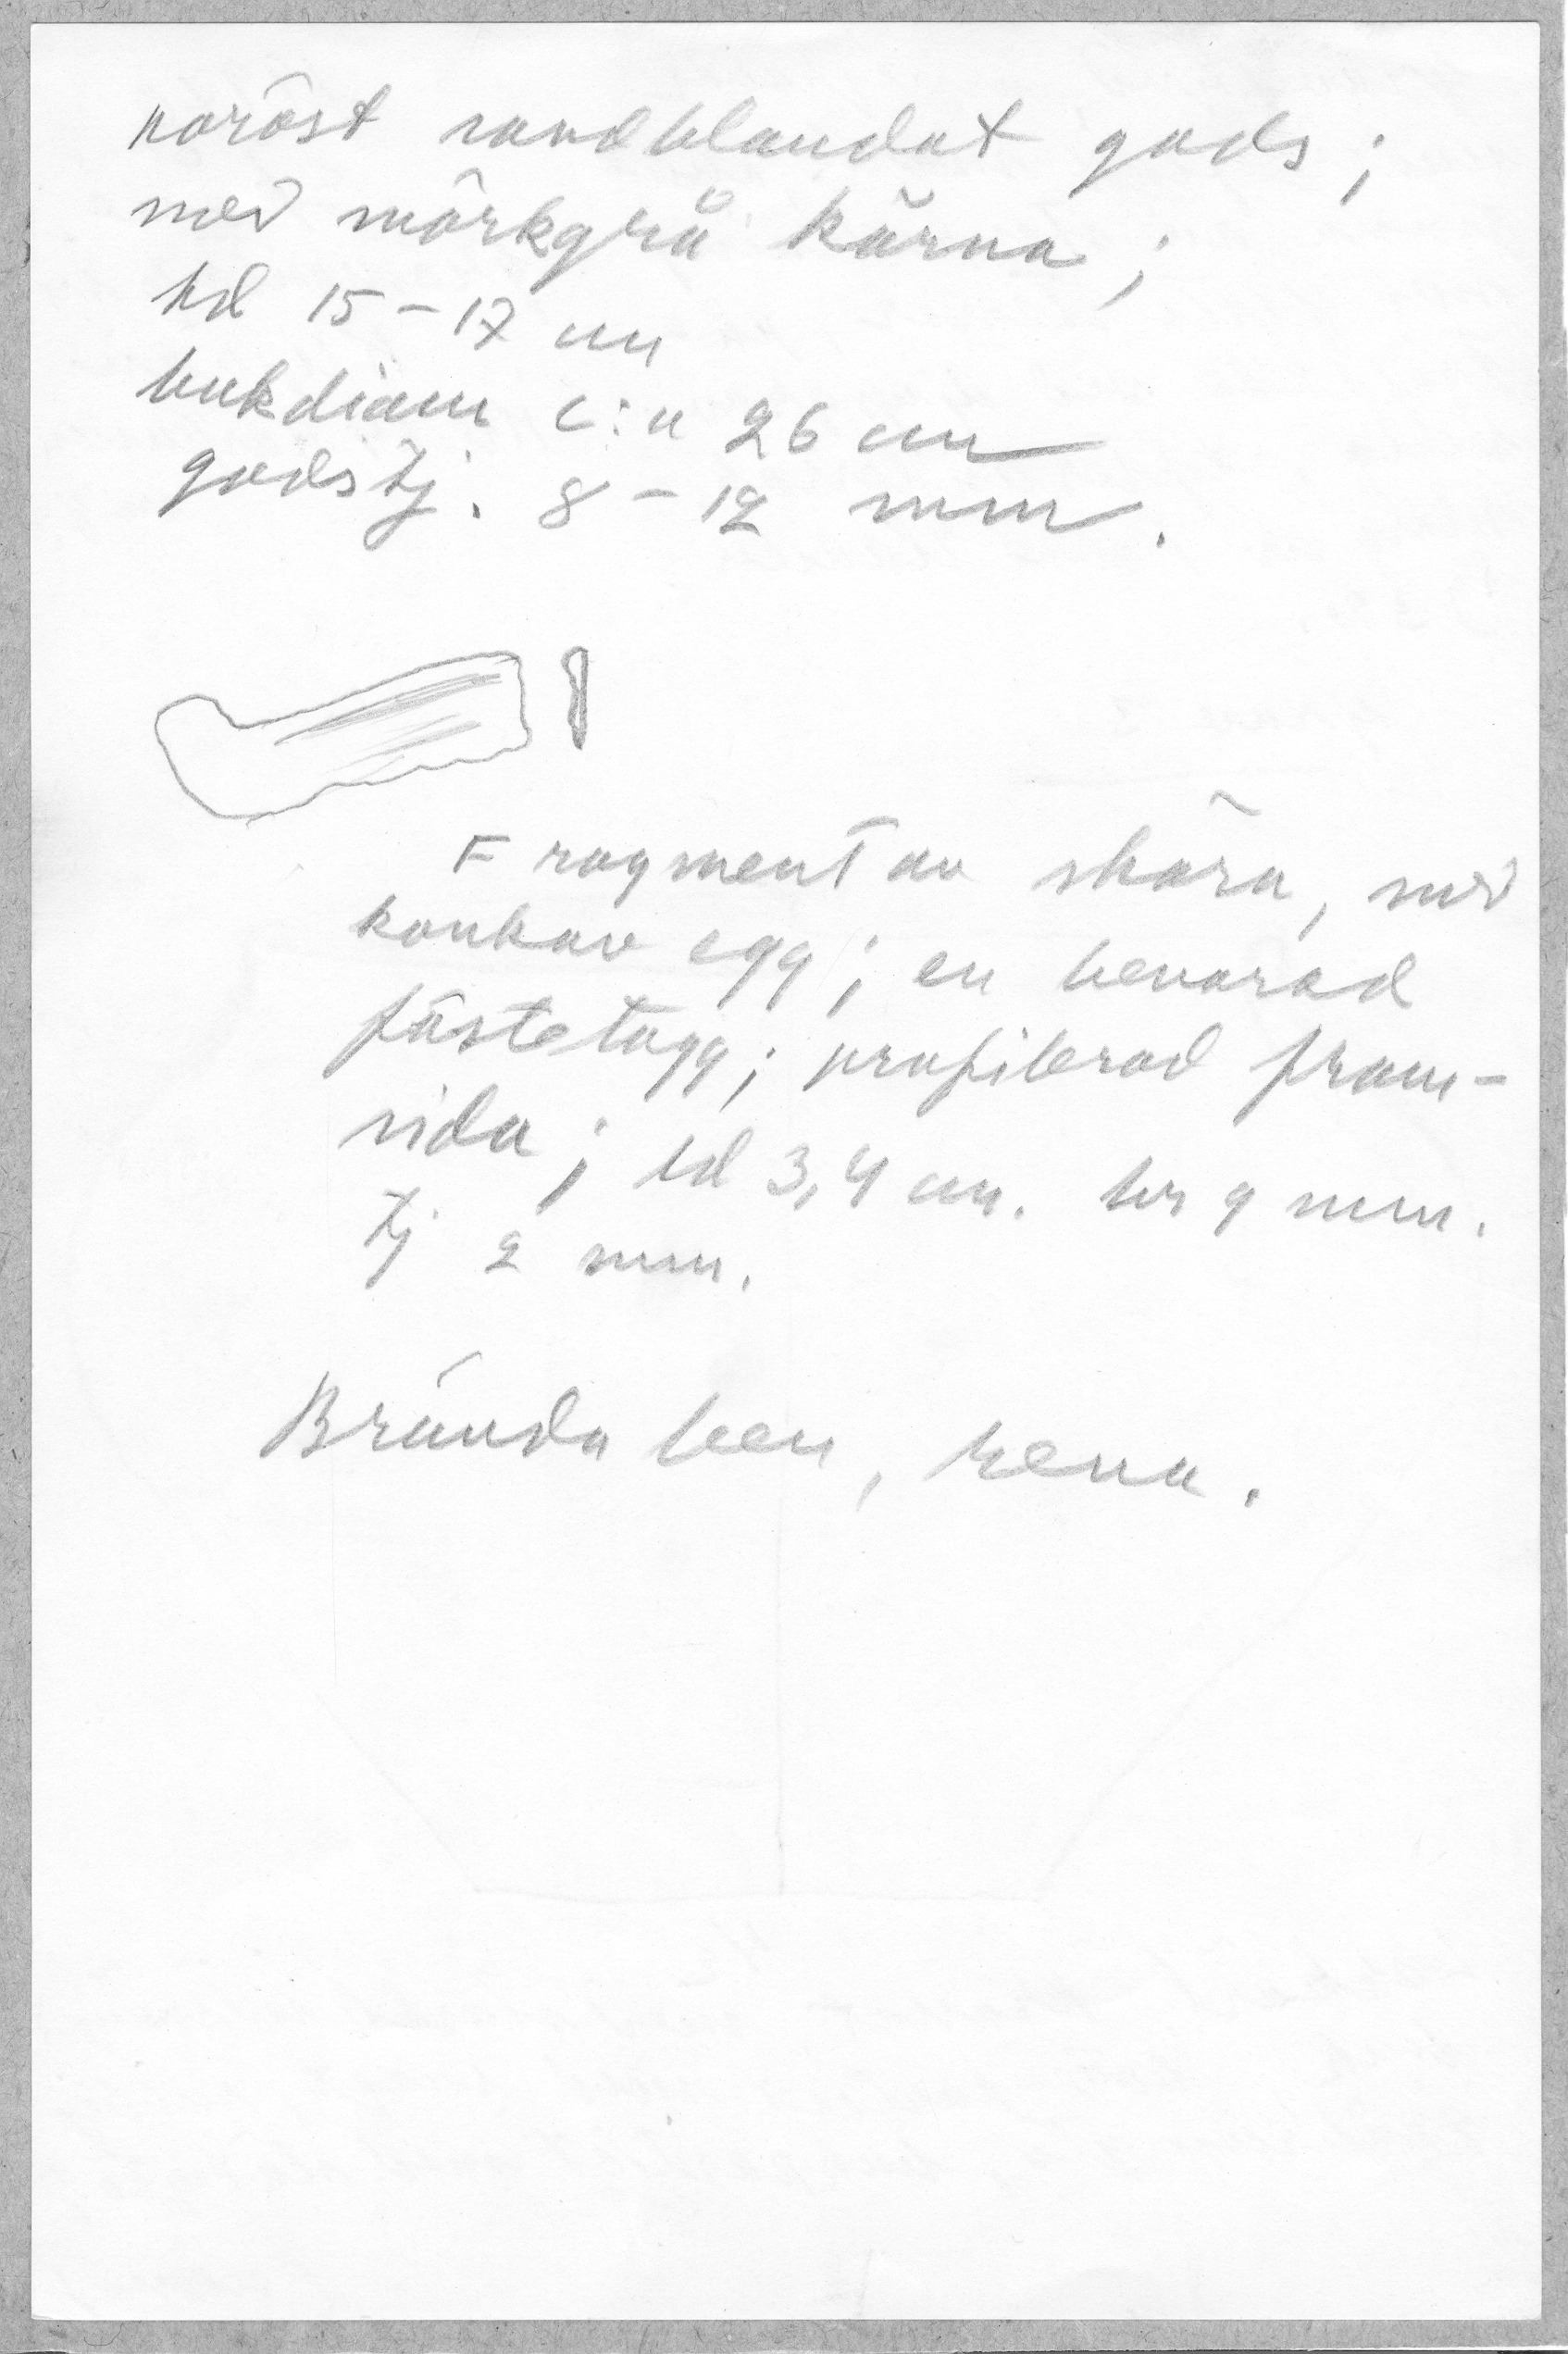 poröst sandblandat gods;
med mörkgrå kärna;
hd 15–17 cm
bukdiam c:a 26 cm
godstj. 8–12 mm.
Fragment av skära, med
konkav egg; en bevarad
fästetagg; profilerad fram-
sida; ld 3,4 cm. br 9 mm.
tj 2 mm.
Brända ben, rena.